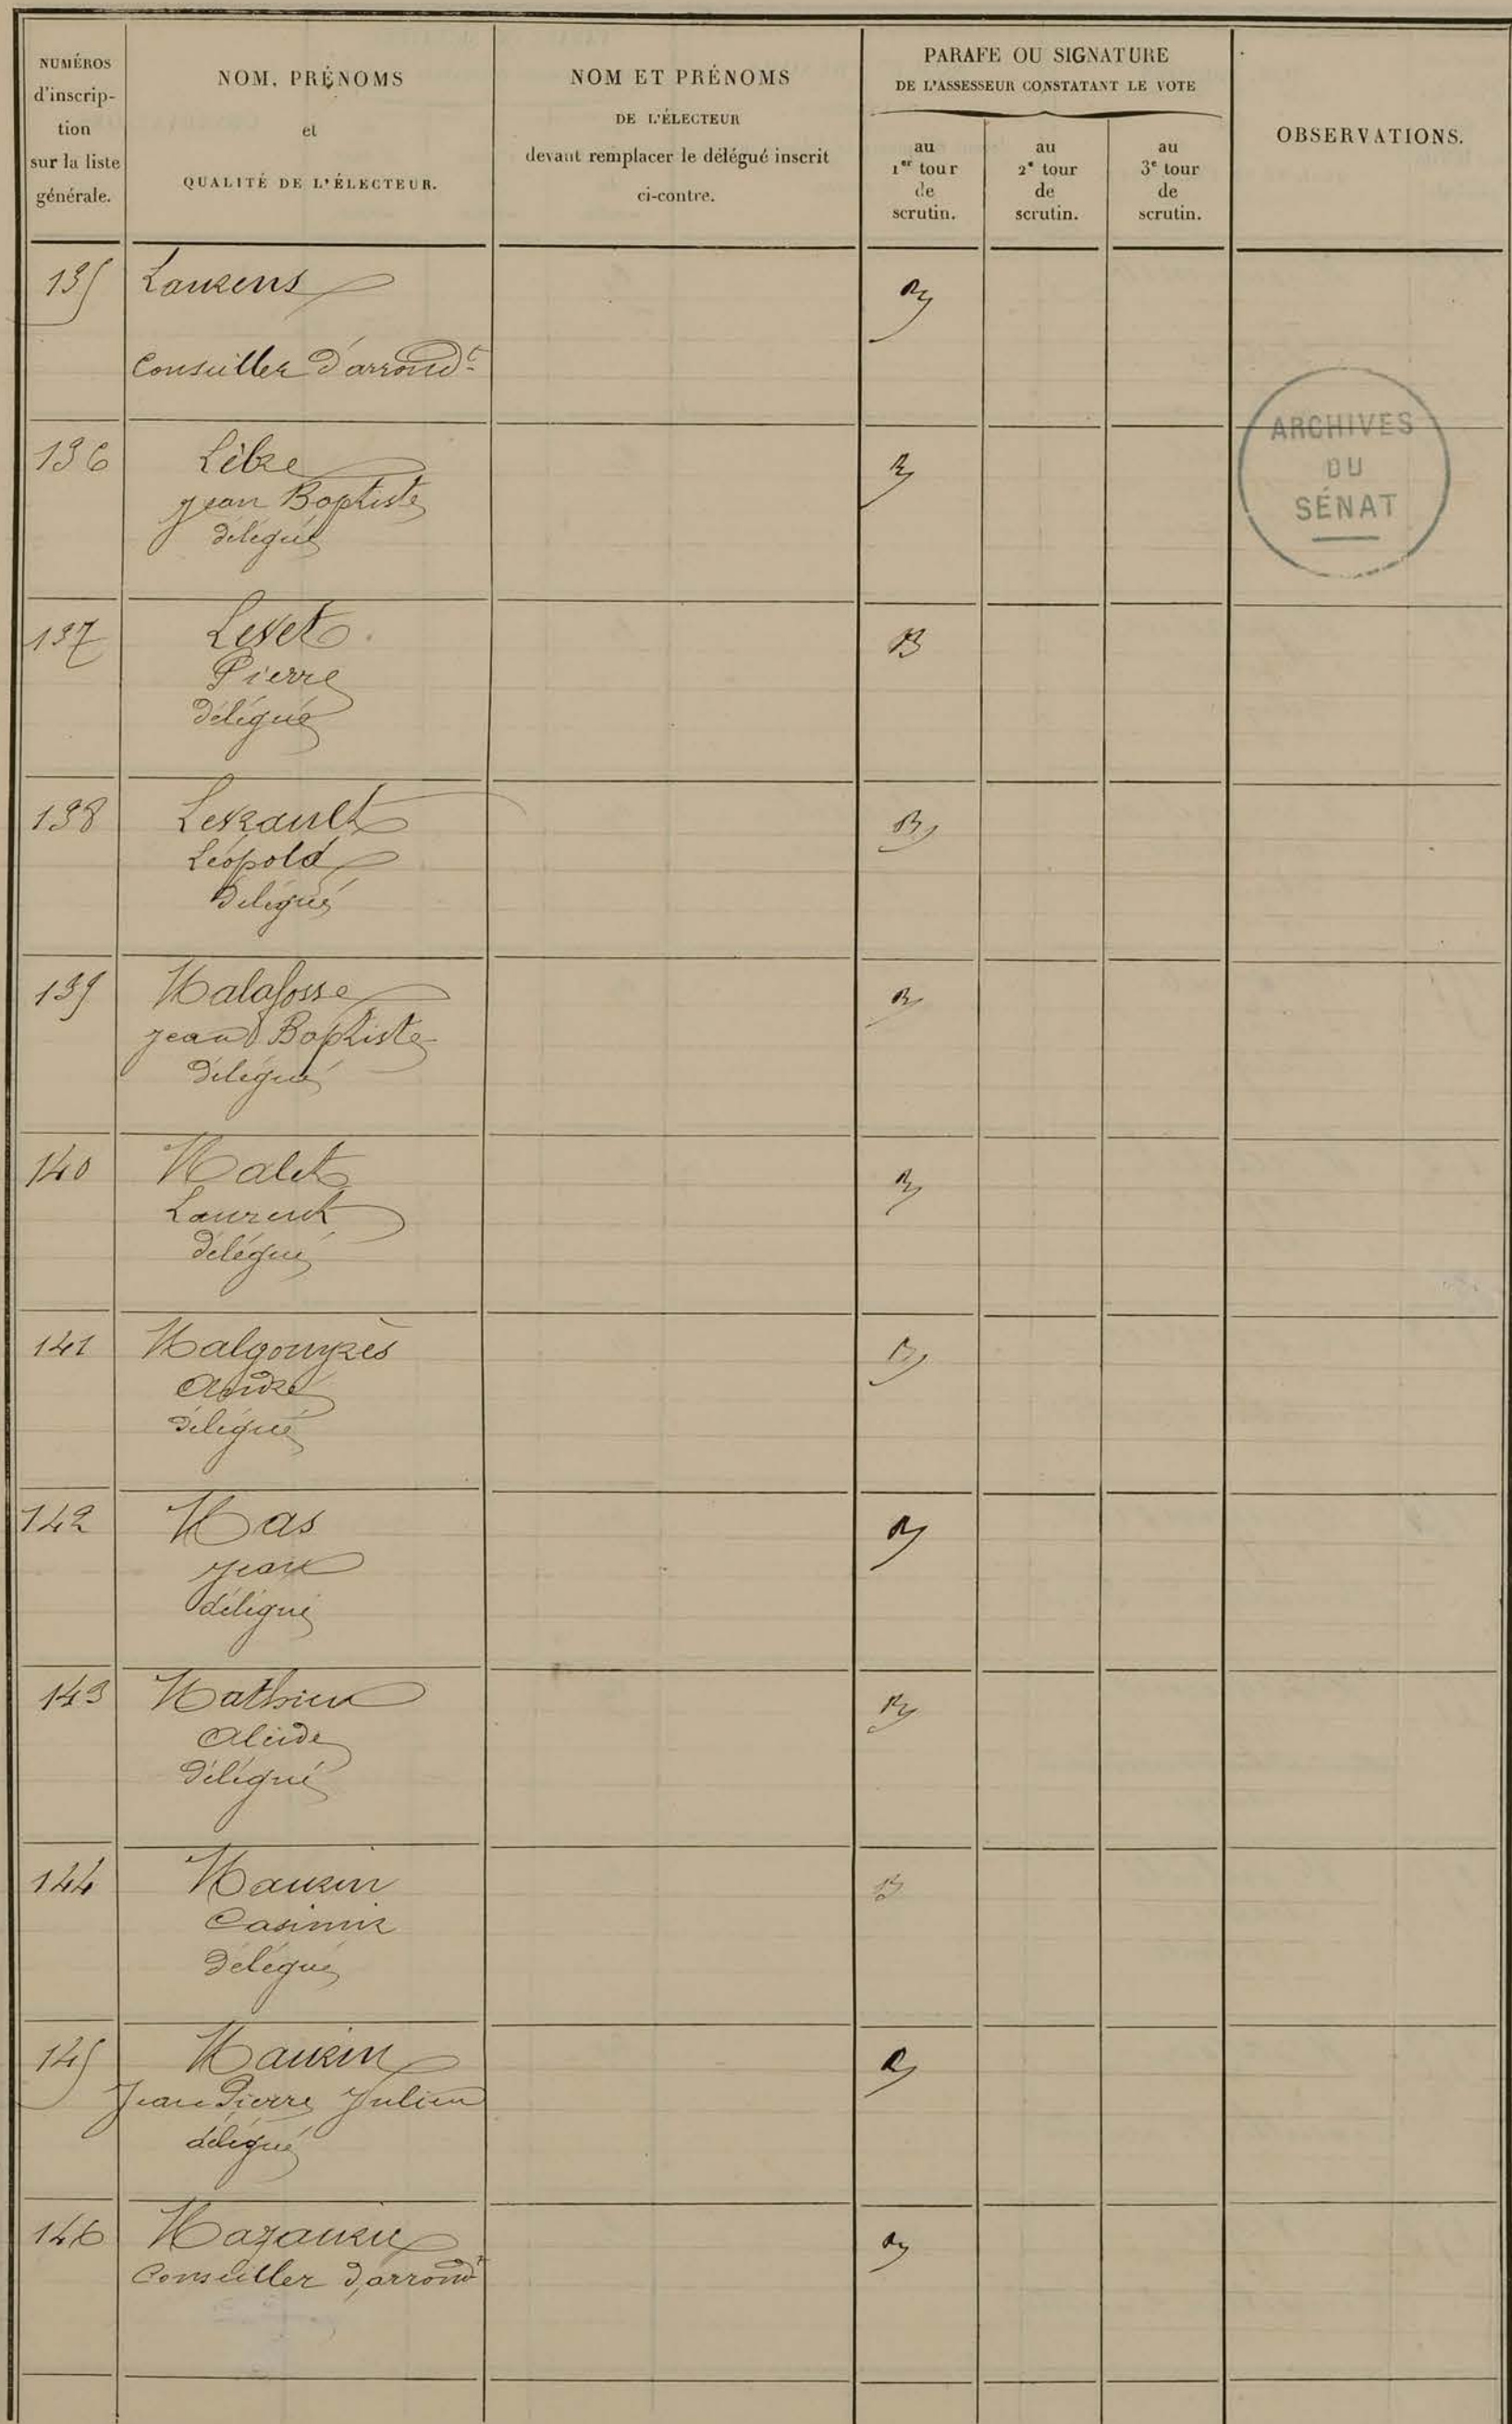 NUMÉROS
d'inscrip-
tion
sur la liste
générale.
NOM, PRÉNOMS
et
QUALITÉ DE L'ÉLECTEUR.
NOM ET PRÉNOMS
DE L'ÉLECTEUR
devant remplacer le délégué inscrit
ci-contre.
PARAFE OU SIGNATURE
DE L'ASSESSEUR CONSTATANT LE VOTE
au
1er tour
de
scrutin.
au
2e tour
de
scrutin.
au
3e tour
de
scrutin.
OBSERVATIONS.
135 Lauzens
Conseiller d'arrondt
ARCHIVES
DU
SÉNAT
136 Lèbre
Jean Baptiste
délégué
137 Levet
Pierre
délégué
138 Levrault
Léopold
délégué
139 Malafosse
Jean Baptiste
délégué
140 Malet
Laurent
délégué
141 Malgouyrès
André
délégué
142 Mas
Jean
délégué
143 Mathieu
Alcide
délégué
144 Maurin
Casimir
délégué
145 Maurin
Jean Pierre Julien
délégué
146 Mazauric
Conseiller d'arrondt